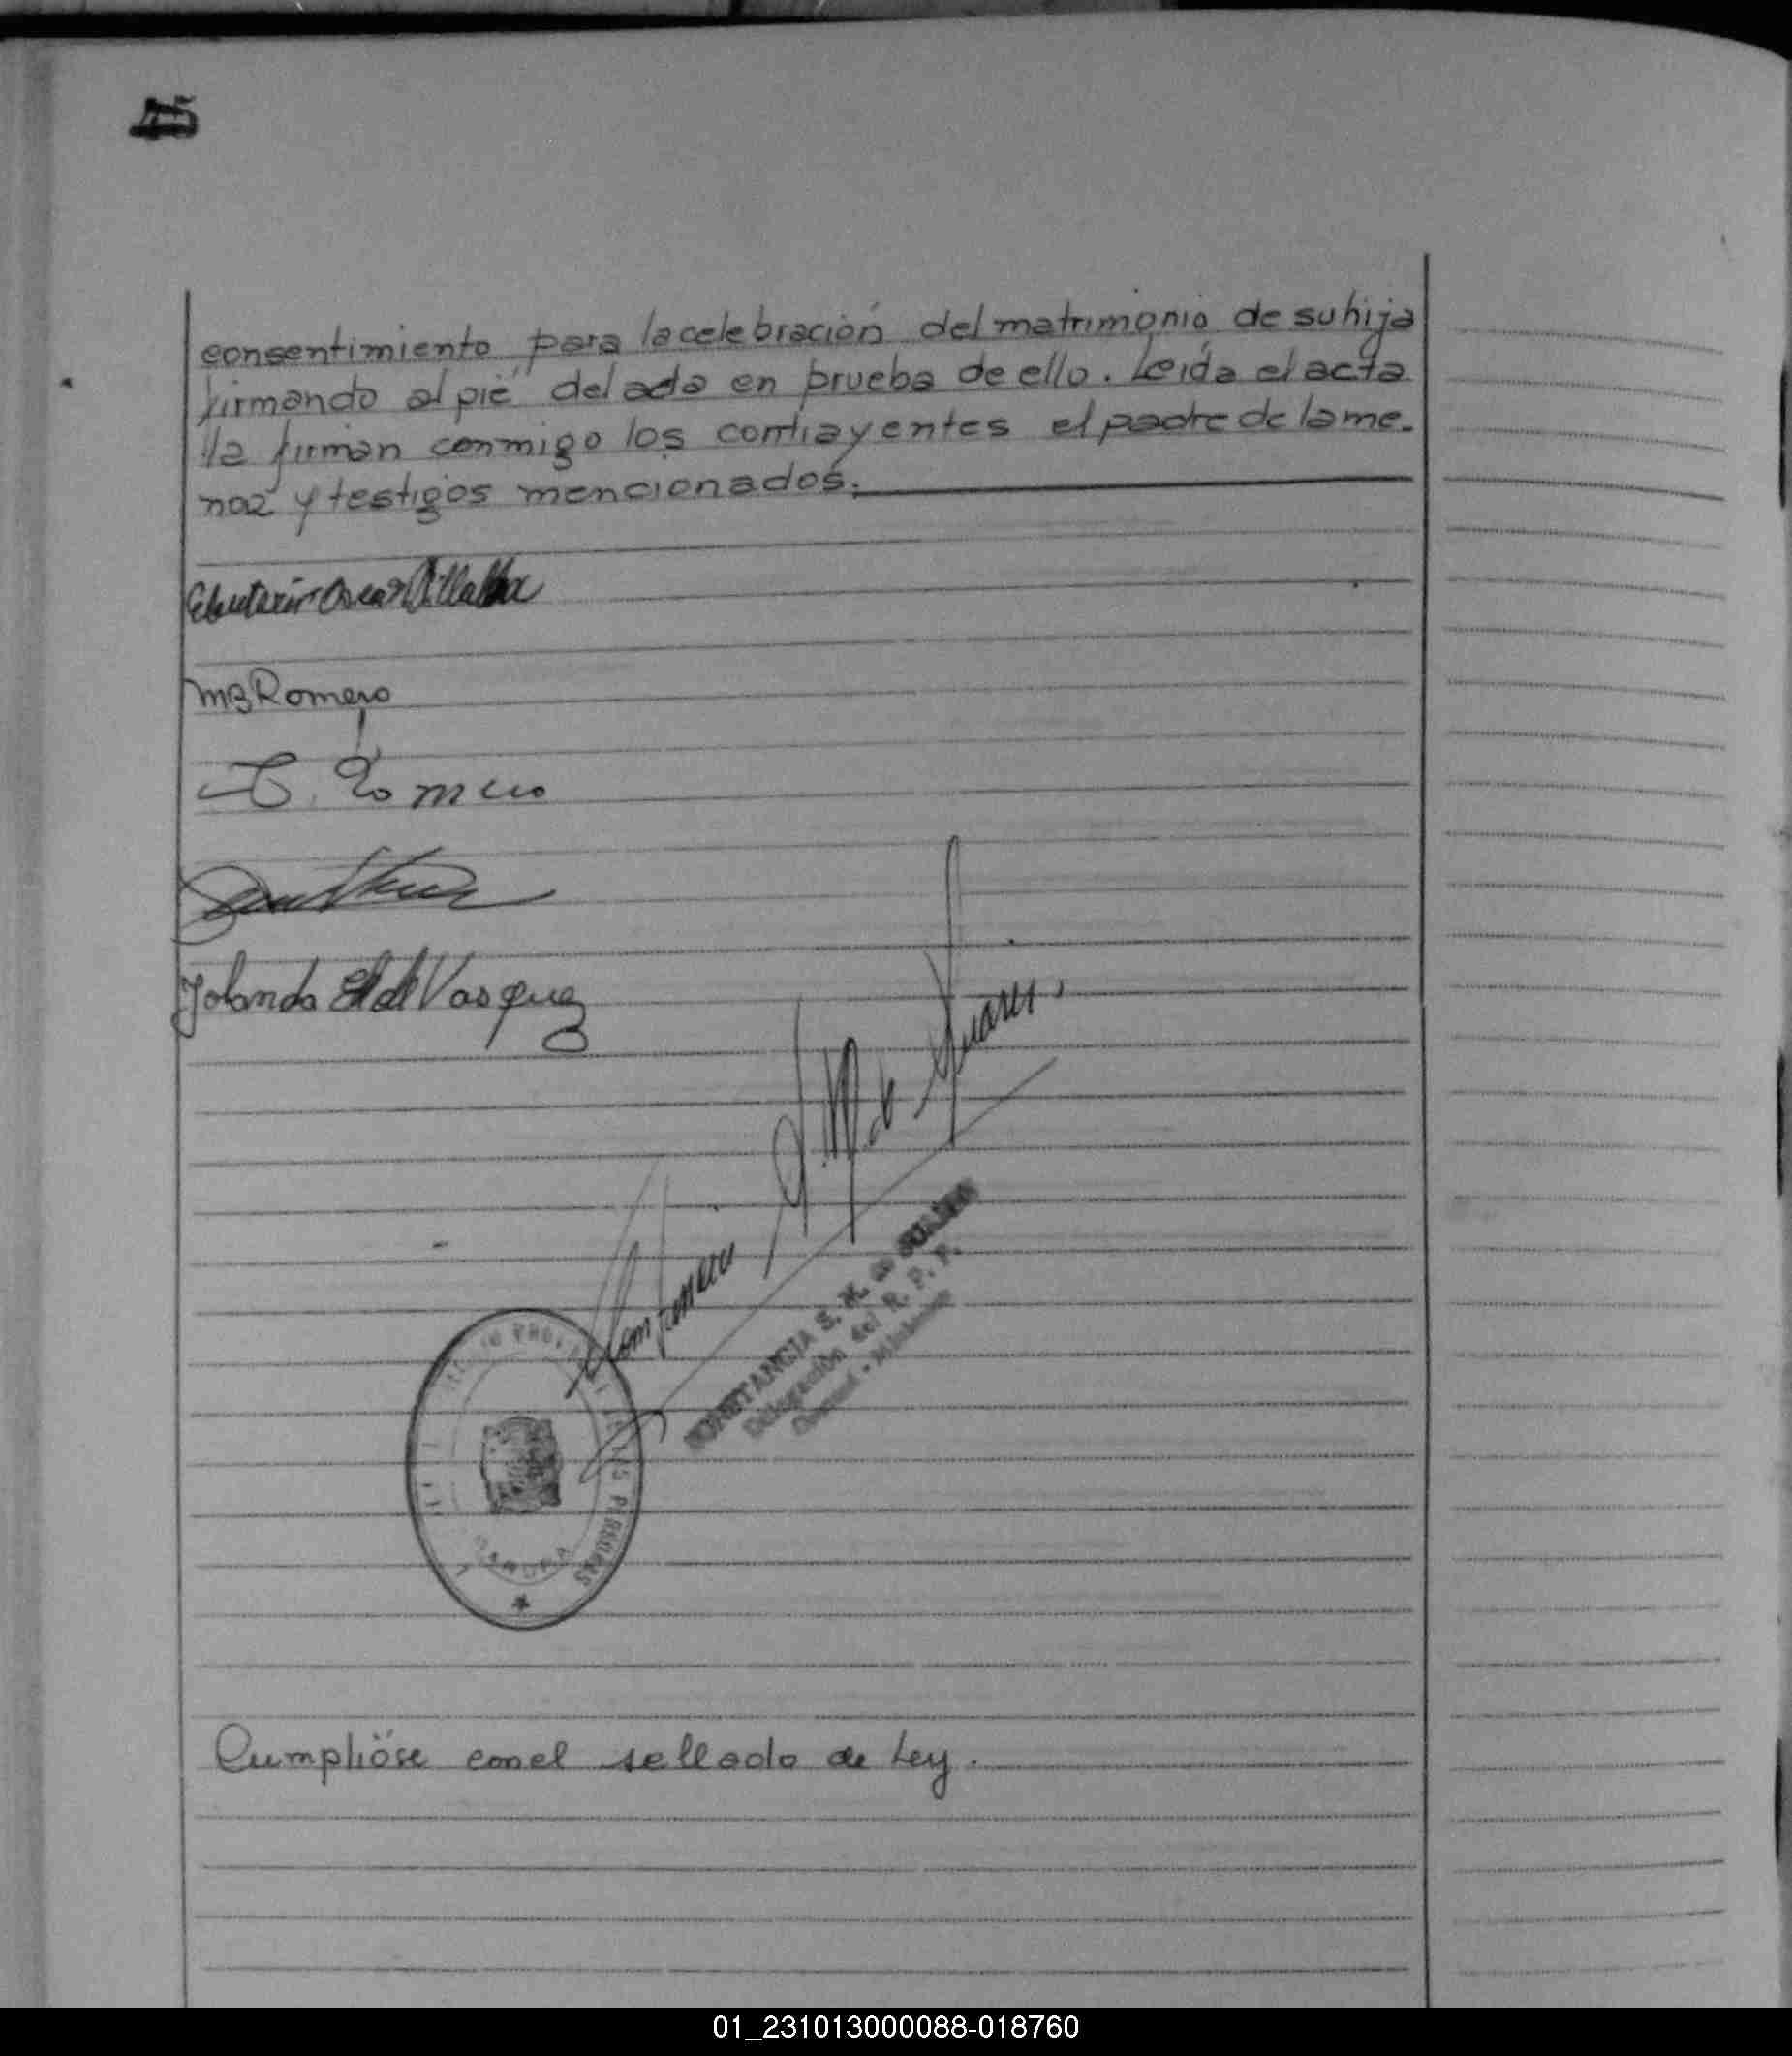 45
consentimiento para la celebración del matrimonio de su hija
firmando al pié del acta en prueba de ello. Leída el acta
la firman conmigo los contrayentes el padre de la me-
nor y testigos mencionados.
Eleuterio Oscar Villalba
MB Romero
Romero
Yolanda de Vasquez
de Suarez
CONSTANCIA S. M. de SUAREZ
Delegación del R. P. P.
Misiones
PERSONAS
Cumplióse con el sellado de Ley.
01_231013000088-018760